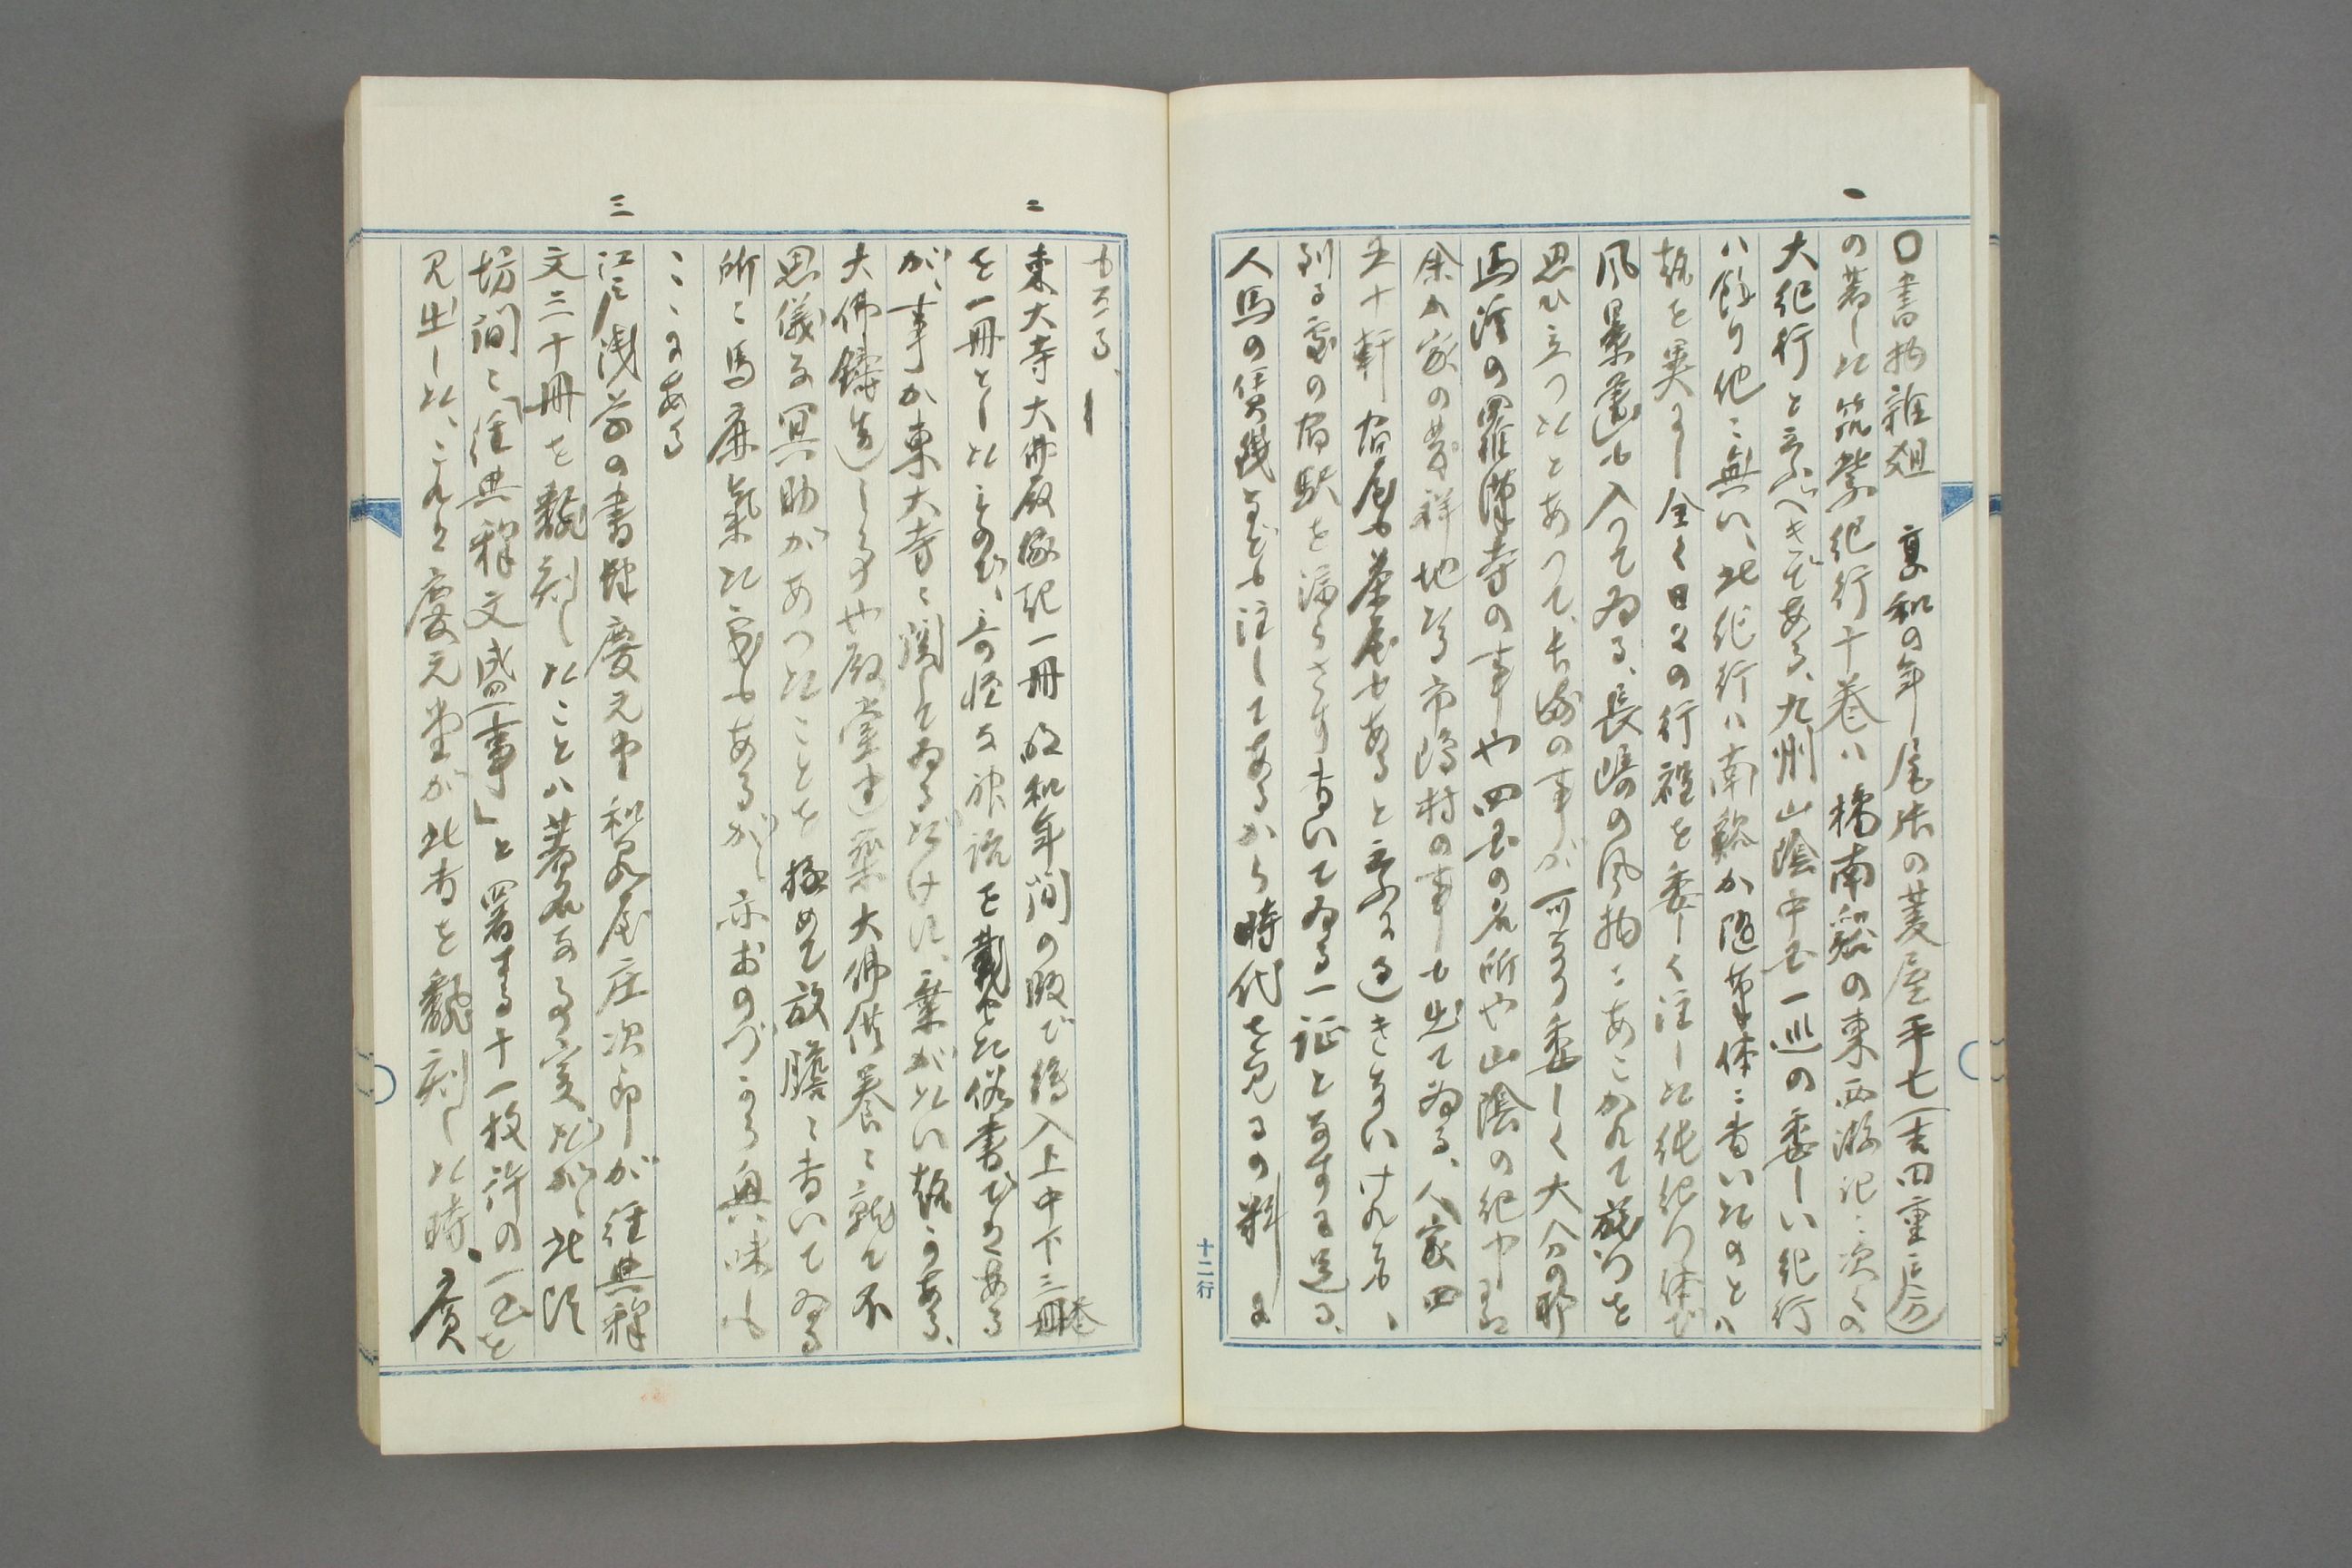 一
〇書物雑爼 享和の年尾張の菱屋平七(吉田重房)
の著した筑紫紀行十巻ハ橘南谿の東西遊記に次ぐの
大紀行と云ふべきである、九州山陰中国一巡の委しい紀行
ハ餘り他に無い、此紀行ハ南谿か随筆体に書いたのとハ
趣を異にし全く日々の行程を委しく注した純紀行体で
風景畫も入つてゐる、長崎の風物にあこかれて旅行を
思ひ立つたとあつて、長崎の事が可なり委しく大分の耶
馬渓の羅漢寺の事や四国の名所や山陰の紀中に
余か家の発祥地なる市嶋村の事も出てゐる、人家四
五十軒宿屋も茶屋もあると云ふに過きないけれども、
到る處の宿駅を漏らさず書いてゐる一証となすに足る、
人馬の賃銭なども注してあるから時代を見るの料に
十二行
もなる、
二
東大寺大佛殿縁起一冊 明和年間の版で繪入上中下三巻
を一冊としたものだ、奇怪な神話を載せた俗書でハある
が、事か東大寺に関してゐるだけに、棄がたい趣かある、
大佛鋳造しる事や殿堂建築大佛供養に就て不
思儀な冥助があつたことを極めて放膽に書いてゐる
所に馬鹿氣た處もあるが、亦おのづから興味も
こゝにある
三
江戸浅草の書肆慶元堂和泉屋庄次郎が経典釋
文三十冊を飜刻したことハ著名なる事実だが、此頃
坊間に「経典釋文盛事」と署する十一枚許の一書を
見出した、これハ慶元堂が此書を飜刻した時、廣